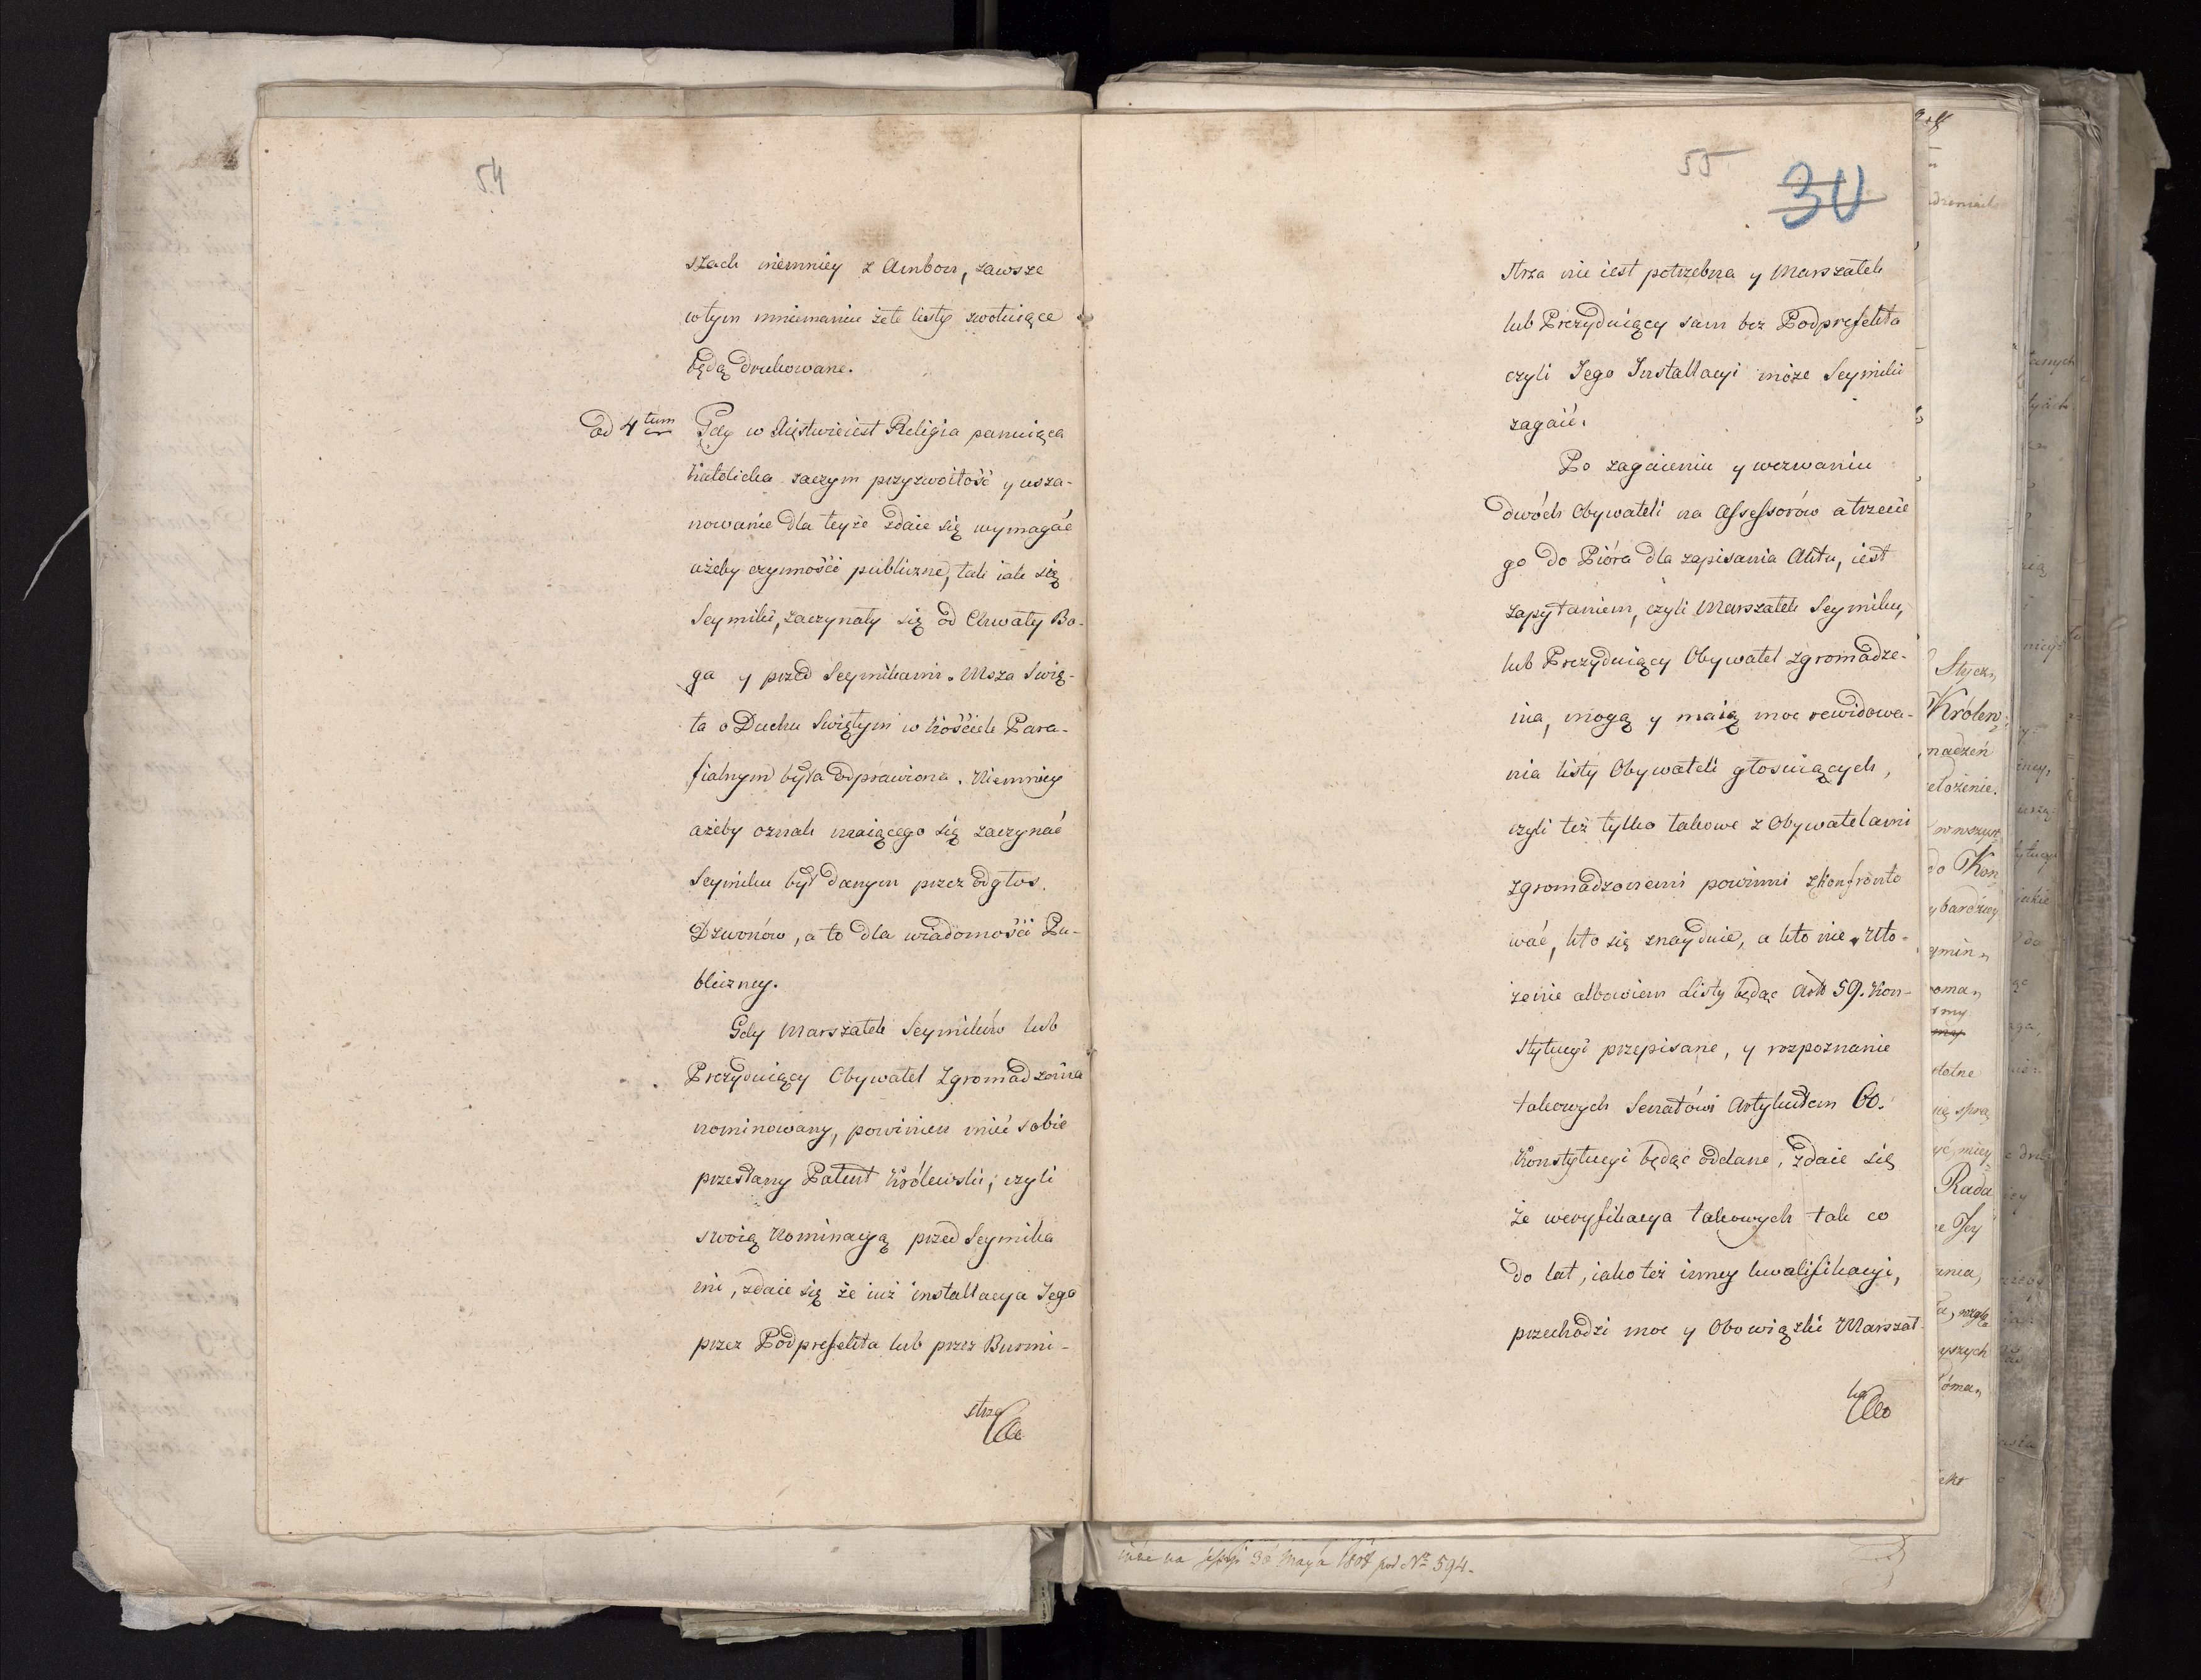 54
szach niemniey z Ambon, zawsze
w tym mniemaniu że te listy zwołuiące
będą drukowane.
ad 4tum Gdy w Xięstwie iest Religia panuiąca
Katolicka zaczym przyzwoitość y usza-
nowanie dla teyże zdaie się wymagać
ażeby czynności publiczne, tak iak są
Seymiki, zaczynały się od Chwały Bo-
ga y przed Seymikami Msza Swię-
ta o Duchu Swiętym w Kościele Para-
fialnym była odprawiona. Niemniey
ażeby oznak maiącego się zaczynać
Seymiku był danym przez odgłos
Dzwonów, a to dla wiadomości Pu-
bliczney.
Gdy Marszałek Seymików lub
Prezyduiący Obywatel Zgromadzenia
nominowany, powinien mieć sobie
przesłany Patent Królewski, czyli
swoią Nominacyą przed Seymika
mi, zdaie się że iuż installacya Jego
przez Podprefekta lub przez Burmi-
strza
55
30
strza nie iest potrzebna y Marszałek
lub Prezyduiący sam bez Podprefekta
czyli Jego Installacyi może Seymiki
zagaić.
Po zagaieniu y wezwaniu
dwóch Obywateli na Assessorów a trzecie
go do Pióra dla zapisania Aktu, iest
zapytaniem, czyli Marszałek Seymiku,
lub Prezyduiący Obywatel zgromadze-
nia, mogą y maią moc rewidowa-
nia listy Obywateli głosuiących,
czyli też tylko takowe z Obywatelami
zgromadzonemi powinni zkonfronto
wać, kto się znayduie, a kto nie. Uło-
żenie albowiem Listy będąc Art: 59. Kon-
stytucyi przepisane, y rozpoznanie
takowych Senatowi Artykułem 60.
Konstytucyi będąc oddane, zdaie się
że weryfikacya takowych tak co
do lat, iako też inney kwalifikacyi,
przechodzi moc y Obowiązki Marszał-
ka
na sessyi 30 Maya 1808 pod Nr 594.